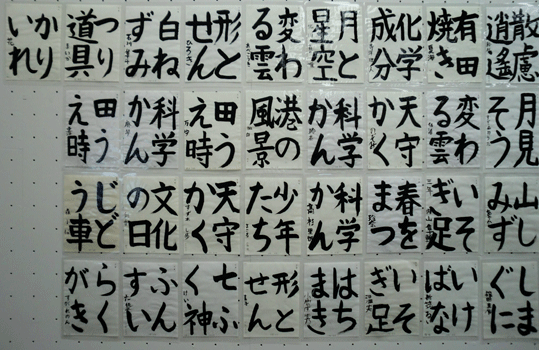 散慮
逍遙
有田
焼き
化学
成分
月と
星空
変わ
る雲
形と
せん
白ね
ずみ
つり
道具
かり
いれ
月見
そう
変わ
る雲
天守
かく
科学
かん
港の
風景
田う
え時
科学
かん
田う
え時
山し
みず
いそ
ぎ足
春を
まつ
科学
かん
少年
たち
天守
かく
文化
の日
じど
う車
いけ
ばな
いそ
ぎ足
はち
まき
形と
せん
七ふ
く神
ふん
すい
らく
がき